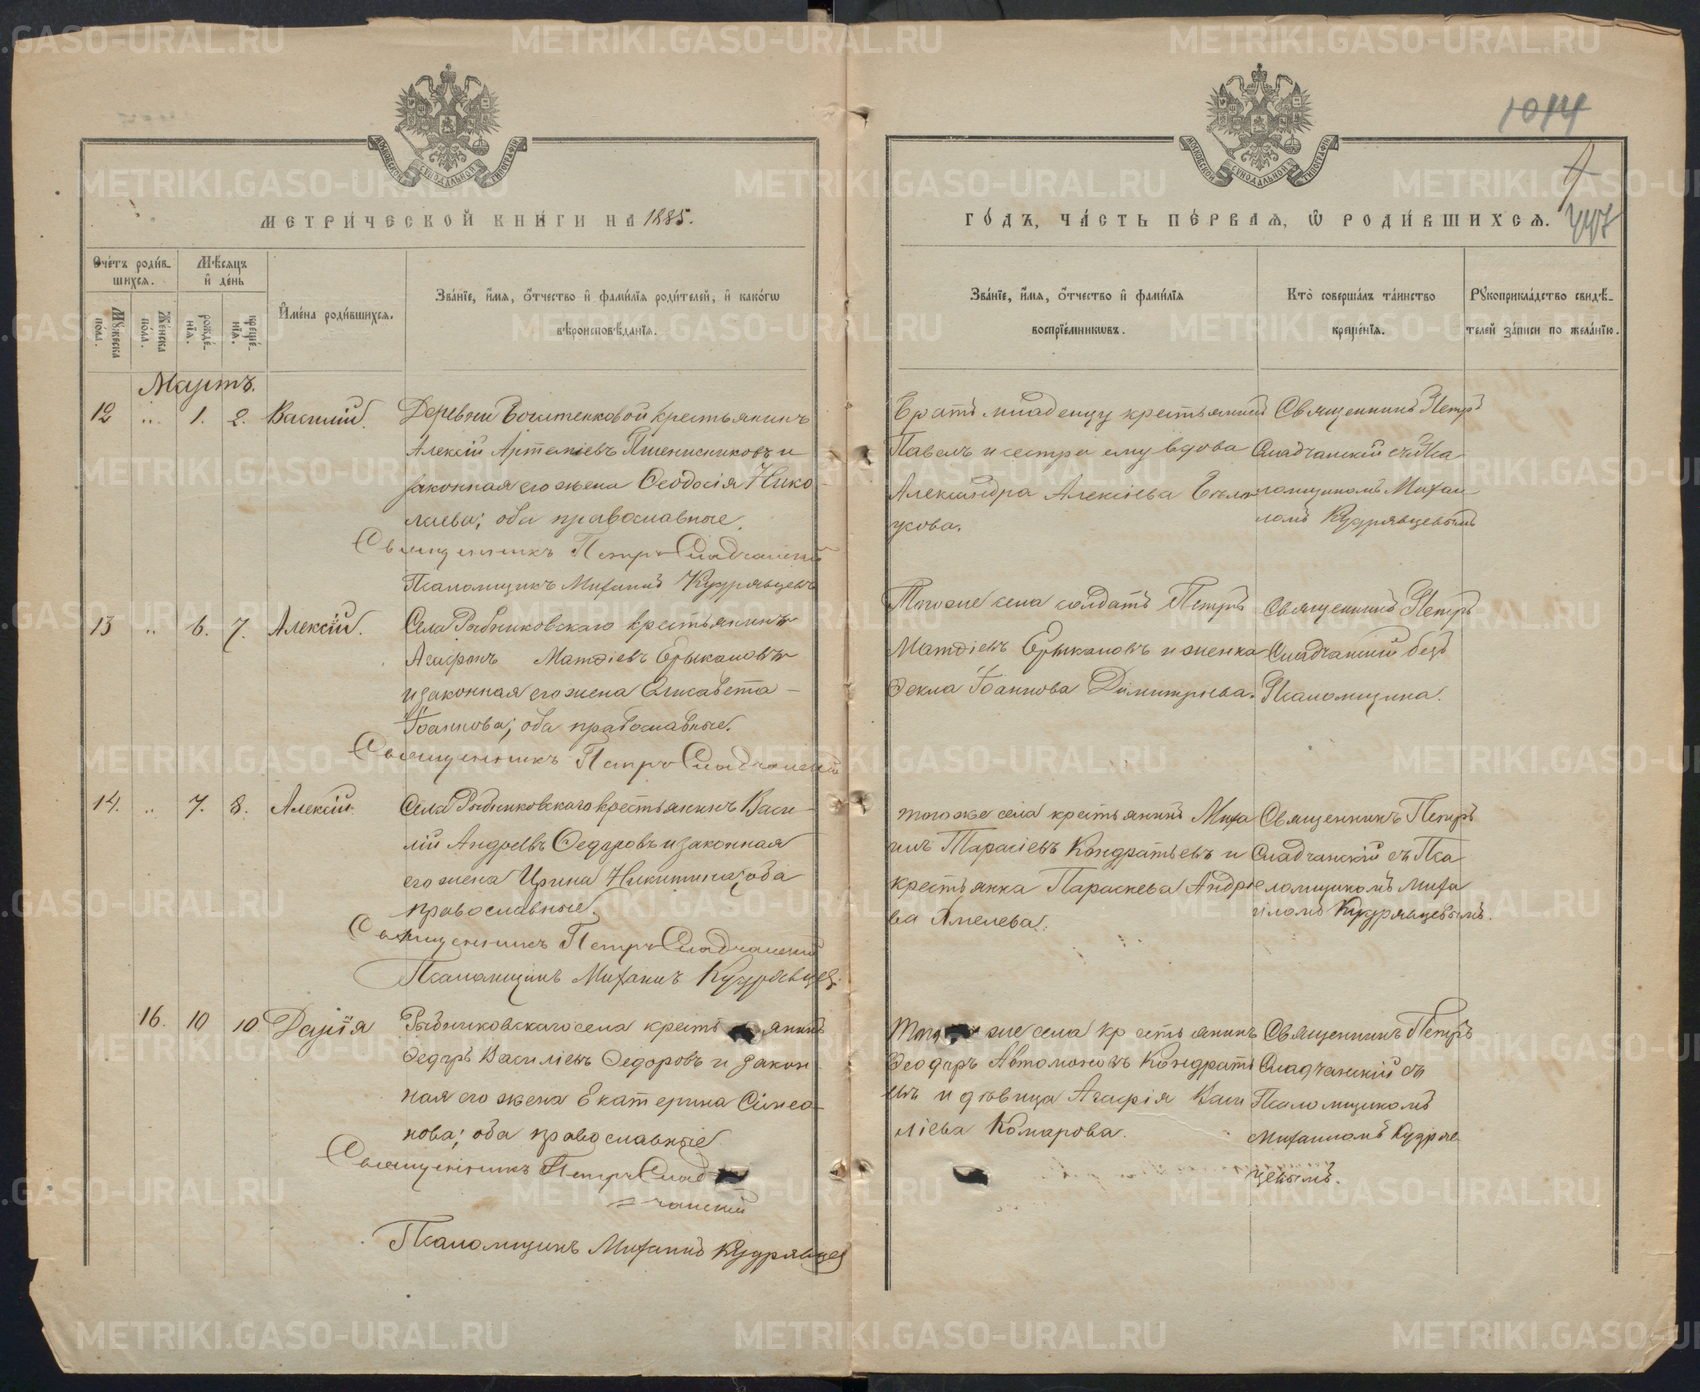 METRIKI.GASO-URAL.RU
1014
МЕТРИ́ЧЕСКОЙ КНИ́ГИ НА 1885.
ГО́ДЪ, ЧА́СТЬ ПЕ́РВАѦ, Ѿ РОДИ́ВШИХСѦ.
447
Счéтъ роди́в-
шихсѧ.
Мѣ́сѧцъ
и̂ де́нь
Мꙋ́жеска
по́ла.
Же́нска
по́ла.
рожде́-
нїѧ.
креще́-
нїѧ.
И̂мена̀ роди́вшихсѧ.
Зва́нїе, и́мѧ, о́тчество и̂ фами́лїѧ роди́телей, и̂ како́гѡ
вѣроисповѣ́данїѧ.
Зва́нїе, и́мѧ, о́тчество и̂ фами́лїѧ
воспрїе́мникѡвъ.
Кто̀ соверша́лъ та́инство
креще́нїѧ.
Рꙋкоприкла́дство свидѣ́-
телей за́писи по жела́нїю.
Мартъ.
12 " 1. 2. Василій.
крестьянинъ
Алексій Артеміевъ Пшенисниковъ и
законная его жена Ѳеодосія Нико-
лаева; оба православные.
Священникъ Петръ Сладчанскій
Псаломщикъ Михаилъ Кудрявцевъ
Братъ младенцу крестьянинъ
Павелъ и сестра ему вдова
Александра Алексіева
Священникъ Петръ
Сладчанскій съ Пса
ломщикомъ Михаи-
ломъ Кудрявцевымъ
13 " 6. 7. Алексій.
Села Рыбниковскаго крестьянинъ
Матѳіевъ Ерыкаловъ
и законная его жена Елисавета -
Іоаннова; оба православные.
Священникъ Петръ Сладчанскій
Тогоже села солдатъ Петръ
Матѳіевъ Ерыкаловъ и женка
Ѳекла Іоаннова Димитріева.
Священникъ Петръ
Сладчанскій безъ
Псаломщика.
14. " 7. 8. Алексій.
Села Рыбниковскаго крестьянинъ Васи-
лій Андреевъ Ѳедоровъ и законная
его жена Ирина Никитина; оба
православные.
Священникъ Петръ Сладчанскій
Псаломщикъ Михаилъ Кудрявцев.
тогоже села крестьянинъ Миха
илъ Тарасіевъ Кондратьевъ и
крестьянка Параскева Андрее
ва Амелева.
Священникъ Петръ
Сладчанскій съ Пса
ломщикомъ Миха
иломъ Кудрявцевымъ.
16. 10 10 Дарія
Рыбниковскаго села крестьянинъ
Ѳедоръ Василіевъ Ѳедоровъ и закон
ная его жена Екатерина Симео-
нова; оба православные
Священникъ Петръ Слад
чанскій
Псаломщикъ Михаилъ Кудрявцев
Тогоже села крестьянинъ
Ѳеодоръ Автомоновъ Кондрать
евъ и дѣвица Агафія Васи
ліева Комарова.
Священникъ Петръ
Сладчанскій съ
Псаломщикомъ
Михаиломъ Кудряв
цевымъ.